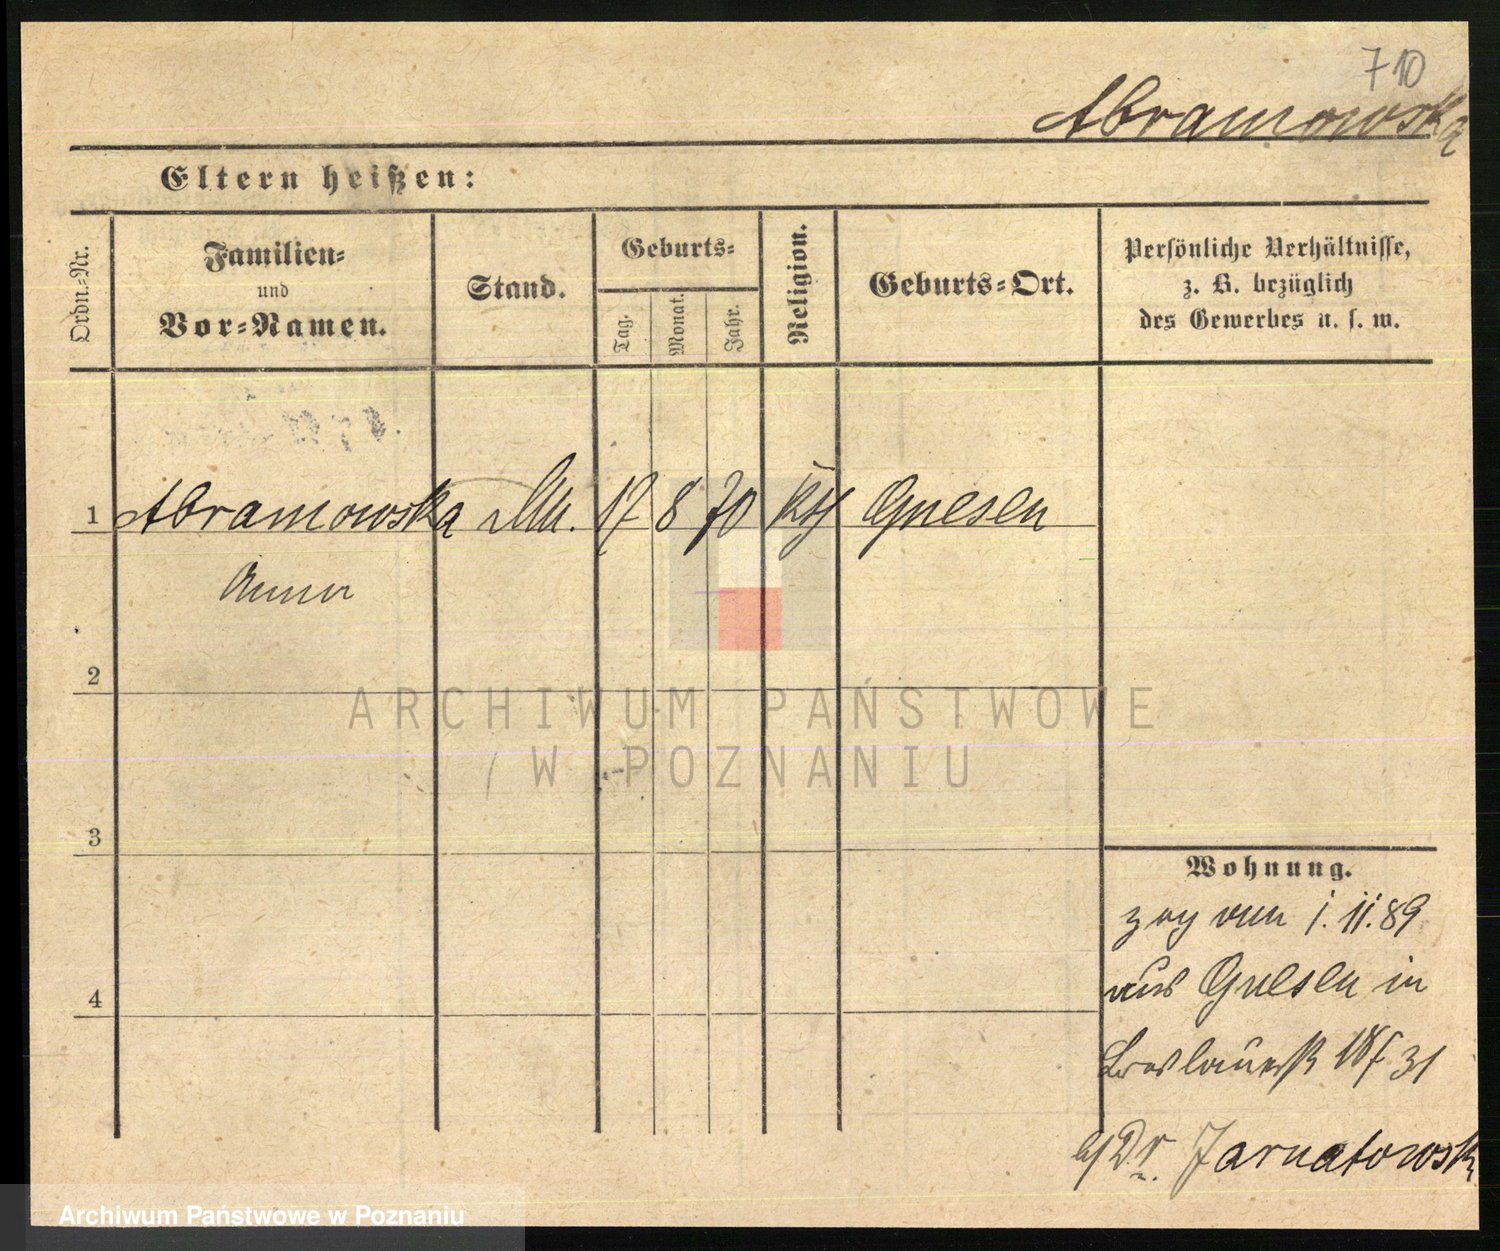 710
Abramowska
Eltern heißen:
Ordn.-Nr.
Familien-
und
Vor-Namen.
Stand.
Geburts-
Tag.
Monat.
Jahr.
Religion.
Geburts-Ort.
Persönliche Verhältnisse,
z. B. bezüglich
des Gewerbes u. s. w.
1 Abramowska 17 8 70 kth Gnesen
Anna
2
ARCHIWUM PAŃSTWOWE
W POZNANIU
3
Wohnung.
zog am 1.11.89
aus Gnesen in
4
Breslauerstr 18 31
b/ Dr. Jarnatowsk
Archiwum Państwowe w Poznaniu